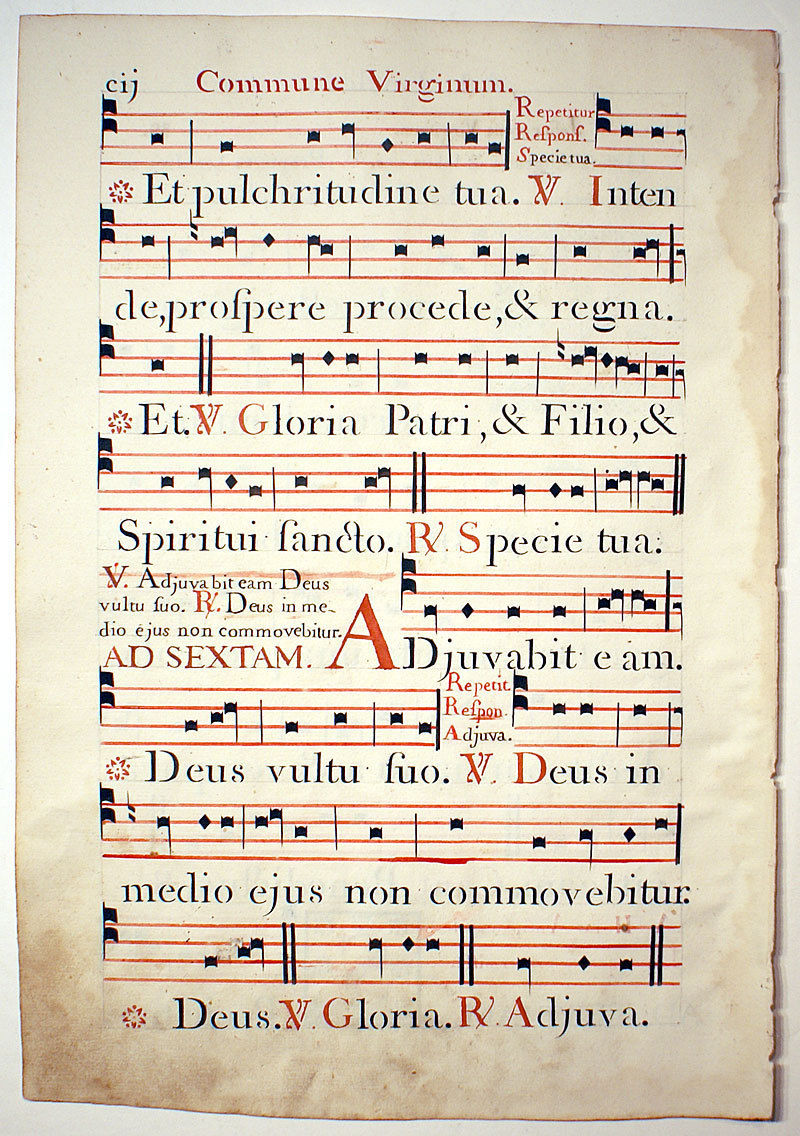 cij Commune Virginum.
Repetitur
Reſponſ.
Specie tua.
Et pulchritudine tua. ℣. Inten
de, proſpere procede, & regna.
Et. ℣. Gloria Patri, & Filio, &
Spiritui ſancto. ℟. Specie tua.
℣. Adjuvabit eam Deus
vultu ſuo. ℟. Deus in me-
dio ejus non commovebitur.
AD SEXTAM. ADjuvabit eam.
Repetit.
Reſpon.
Adjuva.
Deus vultu ſuo. ℣. Deus in
medio ejus non commovebitur.
Deus. ℣. Gloria. ℟. Adjuva.